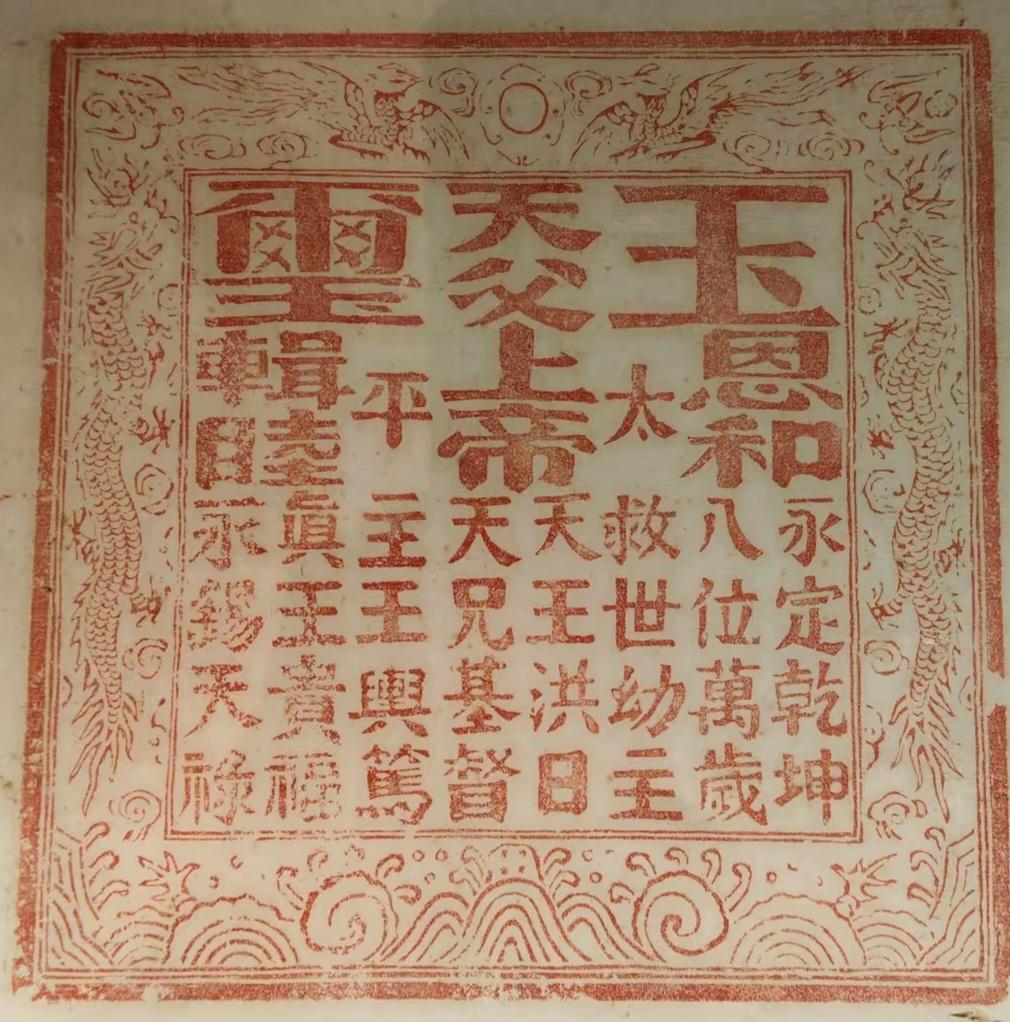 玉
恩和
永定乾坤
八位萬歲
太
救世幼主
天父上帝
天王洪日
天兄基督
平
主王輿篤
璽
輯睦
眞王貴福
永錫天祿